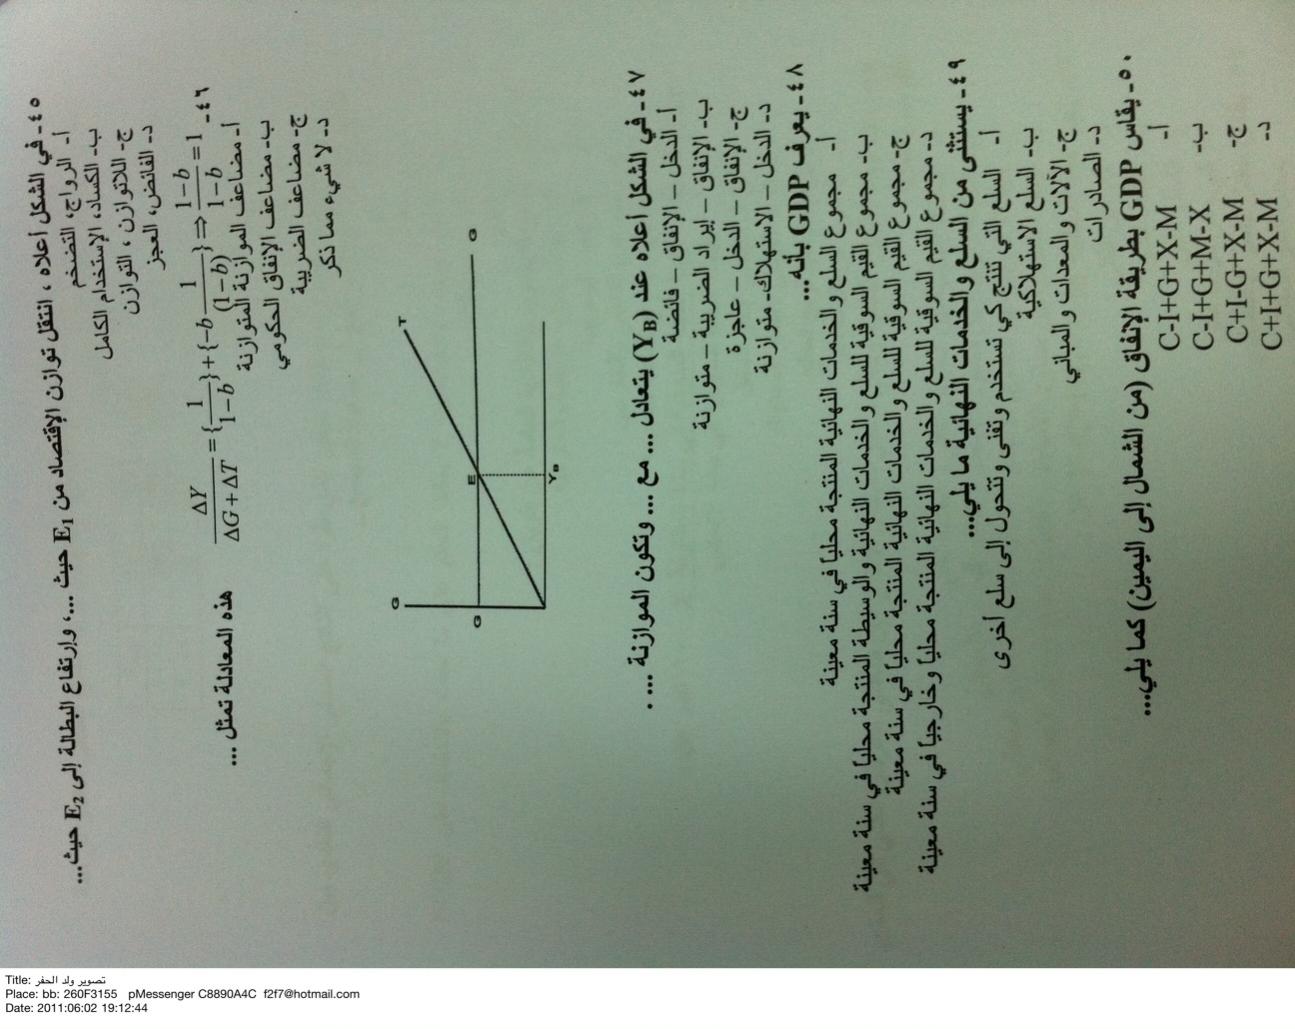 ٤٥- في الشكل أعلاه ، انتقل توازن الإقتصاد من E1 حيث ...، وإرتفاع البطالة إلى E2 حيث...
أ- الرواج، التضخم
ب- الكساد، الإستخدام الكامل
ج- اللاتوازن ، التوازن
د- الفائض، العجز
٤٦- ΔY/(ΔG+ΔT) = {1/(1-b)} + {-b 1/(1-b)} ⇒ (1-b)/(1-b) = 1 هذه المعادلة تمثل ...
أ- مضاعف الموازنة المتوازنة
ب- مضاعف الإنفاق الحكومي
ج- مضاعف الضريبية
د- لا شيء مما ذكر
G
T
G E G
YB
٤٧- في الشكل أعلاه عند (YB) يتعادل ... مع ... وتكون الموازنة ... .
أ- الدخل – الإنفاق – فائضة
ب- الإنفاق – إيراد الضريبية – متوازنة
ج- الإنفاق – الدخل – عاجزة
د- الدخل – الاستهلاك- متوازنة
٤٨- يعرف GDP بأنه...
أ- مجموع السلع والخدمات النهائية المنتجة محلياً في سنة معينة
ب- مجموع القيم السوقية للسلع والخدمات النهائية والوسيطة المنتجة محلياً في سنة معينة
ج- مجموع القيم السوقية للسلع والخدمات النهائية المنتجة محلياً في سنة معينة
د- مجموع القيم السوقية للسلع والخدمات النهائية المنتجة محلياً وخارجياً في سنة معينة
٤٩- يستثنى من السلع والخدمات النهائية ما يلي...
أ- السلع التي تنتج كي تستخدم وتفنى وتتحول إلى سلع أخرى
ب- السلع الاستهلاكية
ج- الآلات والمعدات والمباني
د- الصادرات
٥٠- يقاس GDP بطريقة الإنفاق (من الشمال إلى اليمين) كما يلي...
أ- C-I+G+X-M
ب- C-I+G+M-X
ج- C+I-G+X-M
د- C+I+G+X-M
Title: تصوير ولد الحفر
Place: bb: 260F3155 pMessenger C8890A4C f2f7@hotmail.com
Date: 2011:06:02 19:12:44